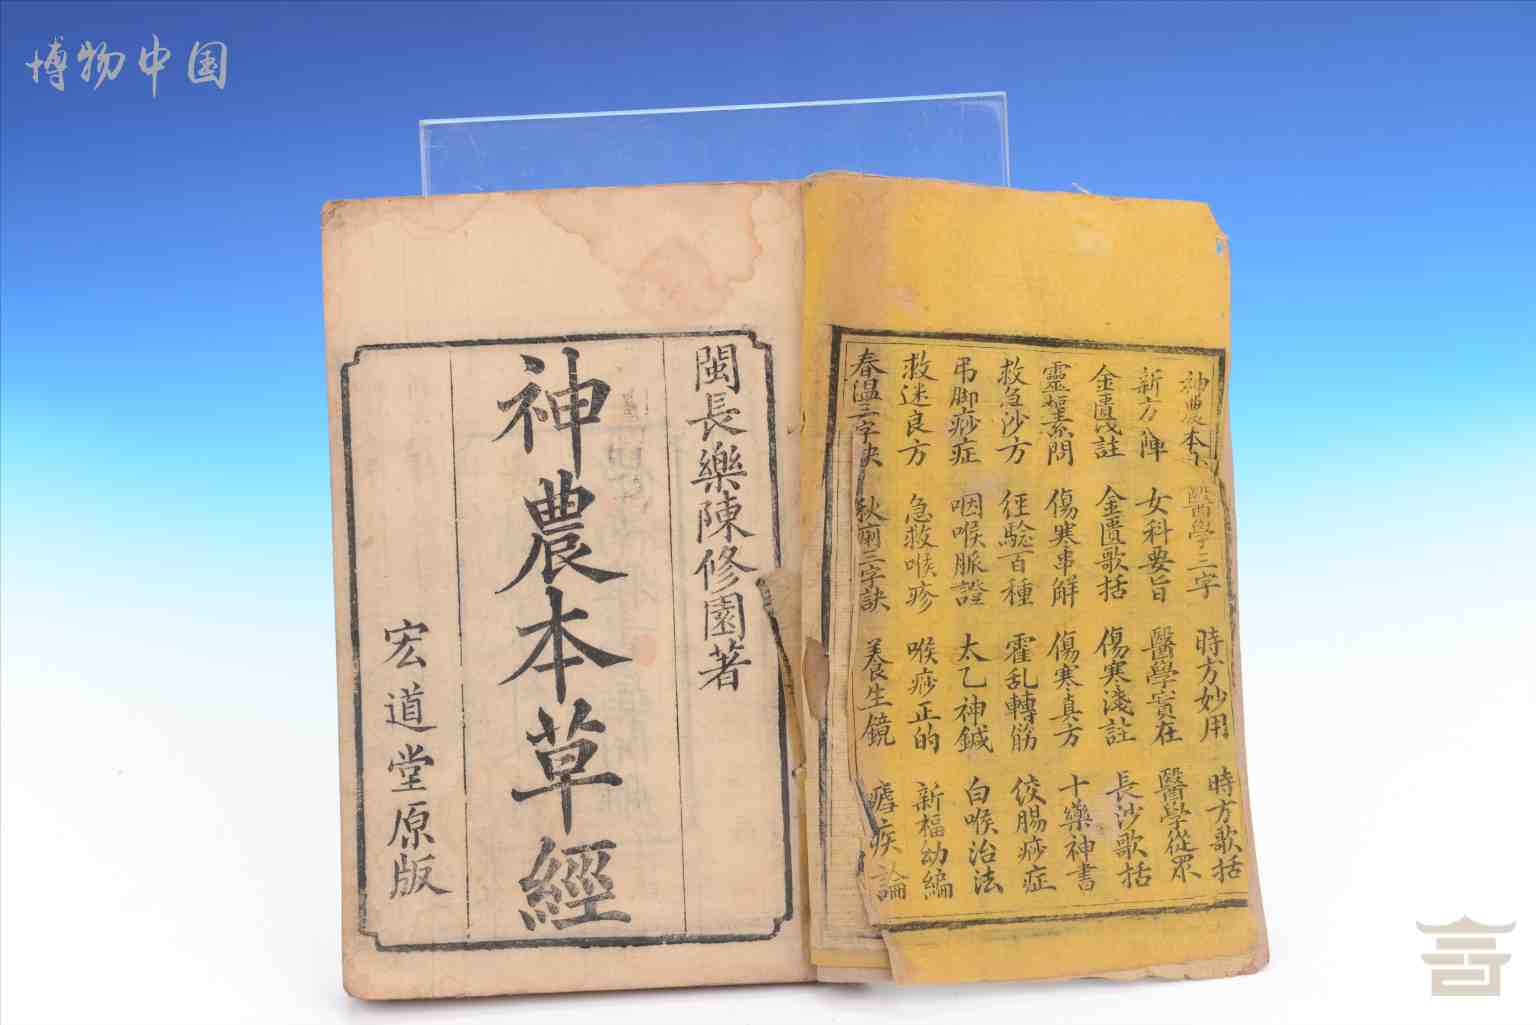 博物中国
神農本
醫學三字
時方妙用
時方歌括
新方陣
女科要旨
醫學實在
醫學從眾
金匱淺註
金匱歌括
傷寒淺註
長沙歌括
靈樞素問
傷寒串解
傷寒真方
十藥神書
救急沙方
經驗百種
霍乱轉筋
絞腸痧症
弔脚痧症
咽喉脈證
太乙神鍼
白喉治法
救迷良方
急救喉疹
喉痧正的
新福幼編
春温三字決
秋痢三字訣
養生鏡
瘧疾論
閩長樂陳修園著
神農本草經
宏道堂原版